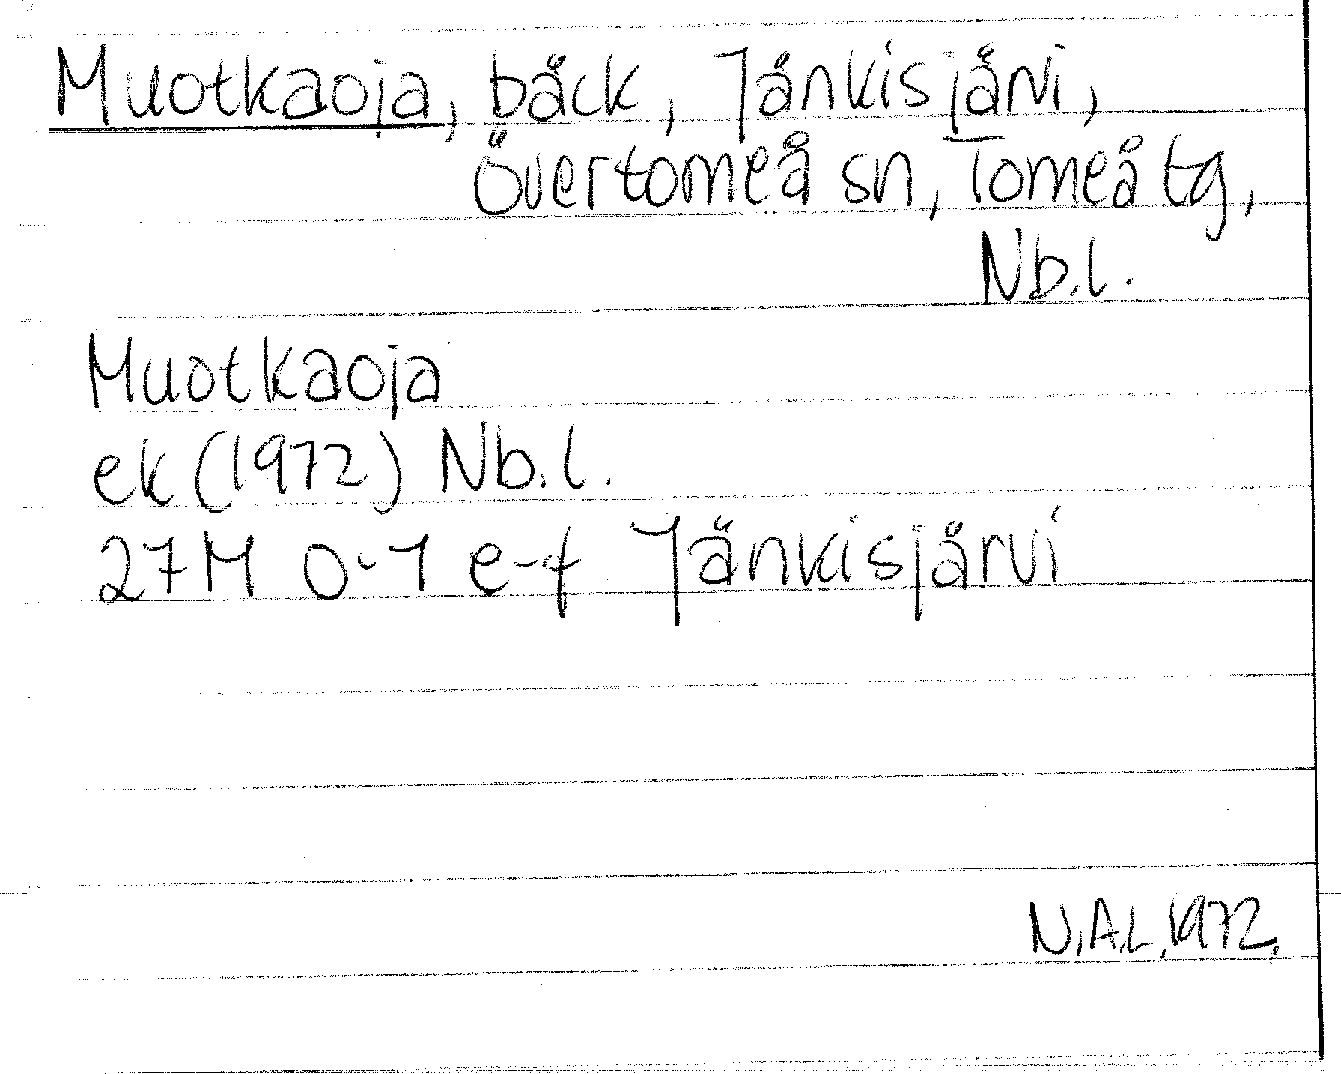 Muotkaoja, bäck, Jänkisjärvi,
Övertorneå sn, Torneå tg,
Nb.l.
Muotkaoja
ek (1972) Nb.l.
27M 0-1 e-f Jänkisjärvi
N.A.L. 1972.